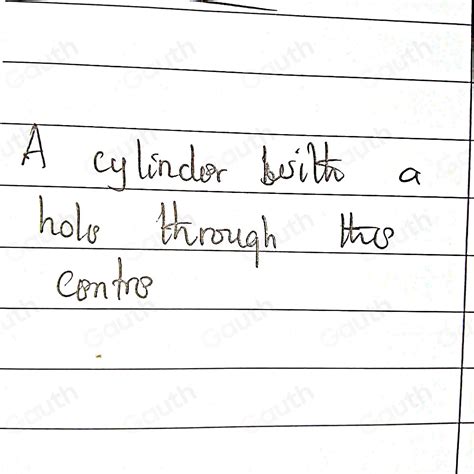 A cylinder with a
hole through the
centre